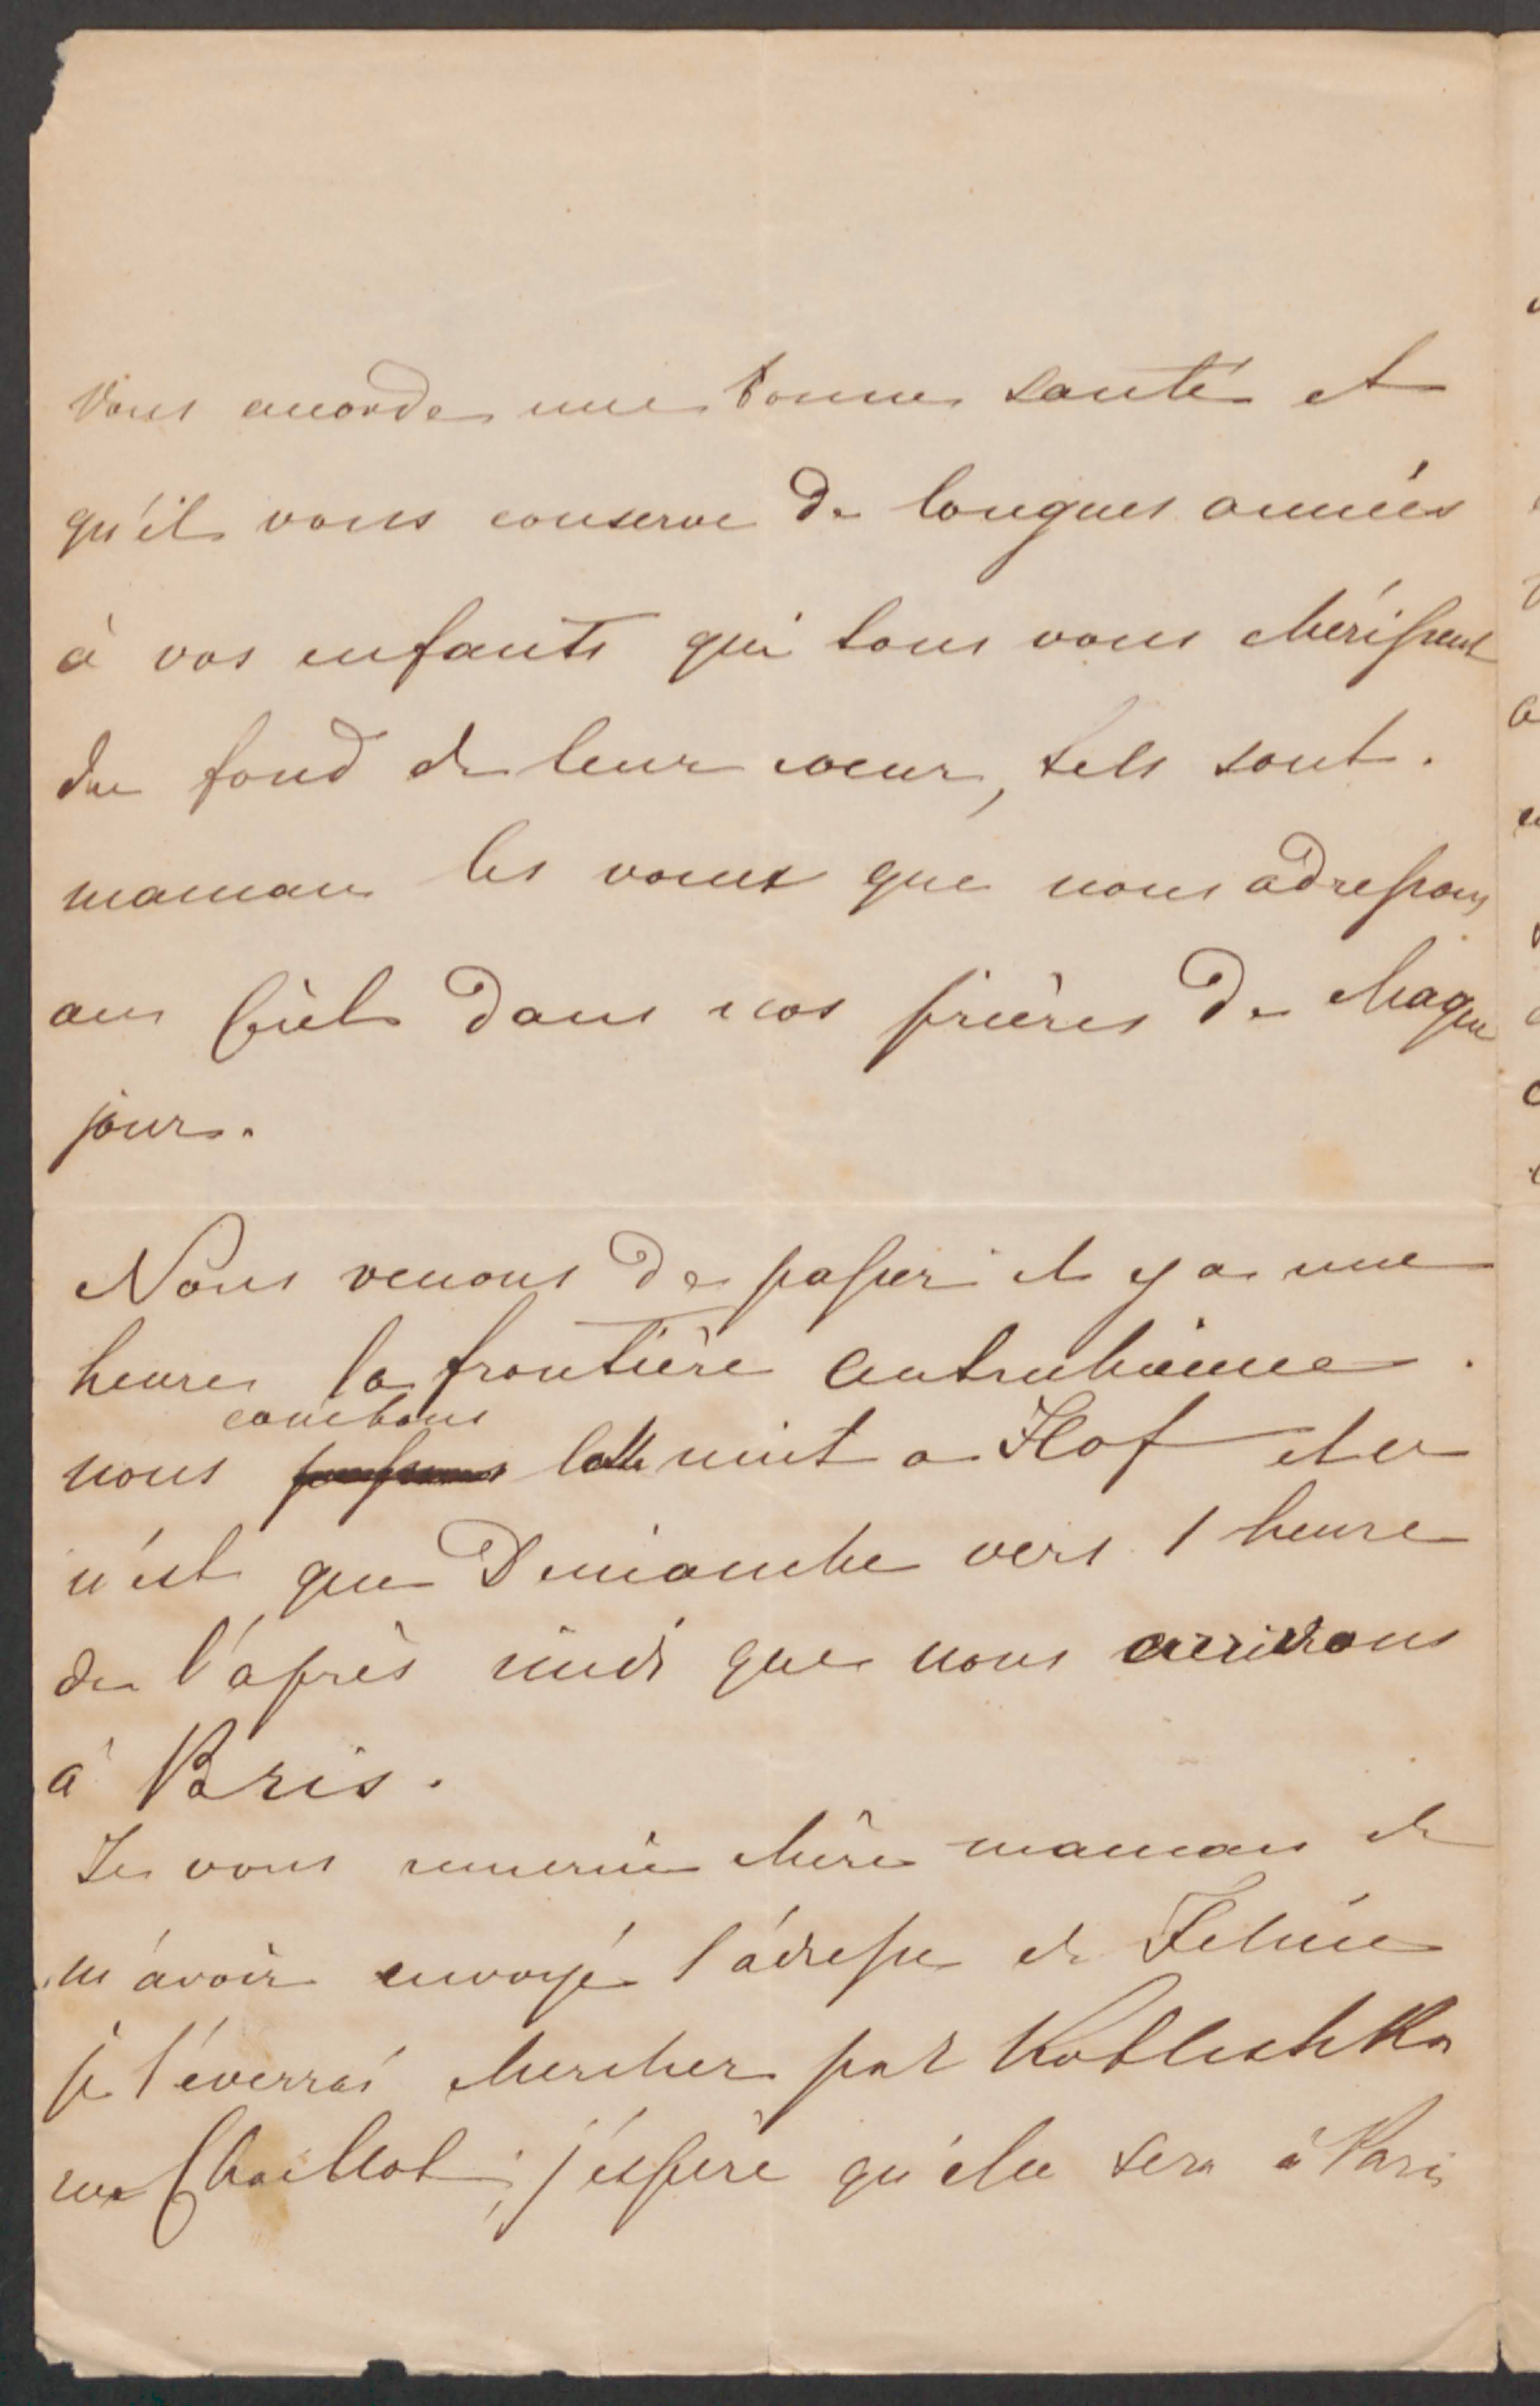 vous accorde une bonne santé et
qu'il vous conserve de longues années
à vos enfants qui tous vous chérissent
du fond de leur coeur, tels sont.
maman les voeux que nous adressons
au Ciel dans nos prières de chaque
jour.
Nous venons de passer il y a une
heure la frontière autrichienne.
couchons
nous la nuit a Hof et ce
n'est que Dimanche vers 1 heure
de l'après midi que nous arrivons
à Paris.
Je vous remercie chère maman de
m'avoir envoyé l'adresse de
je l'éverrai chercher par
rue Chaillot; j'éspère qu'elle sera à Paris